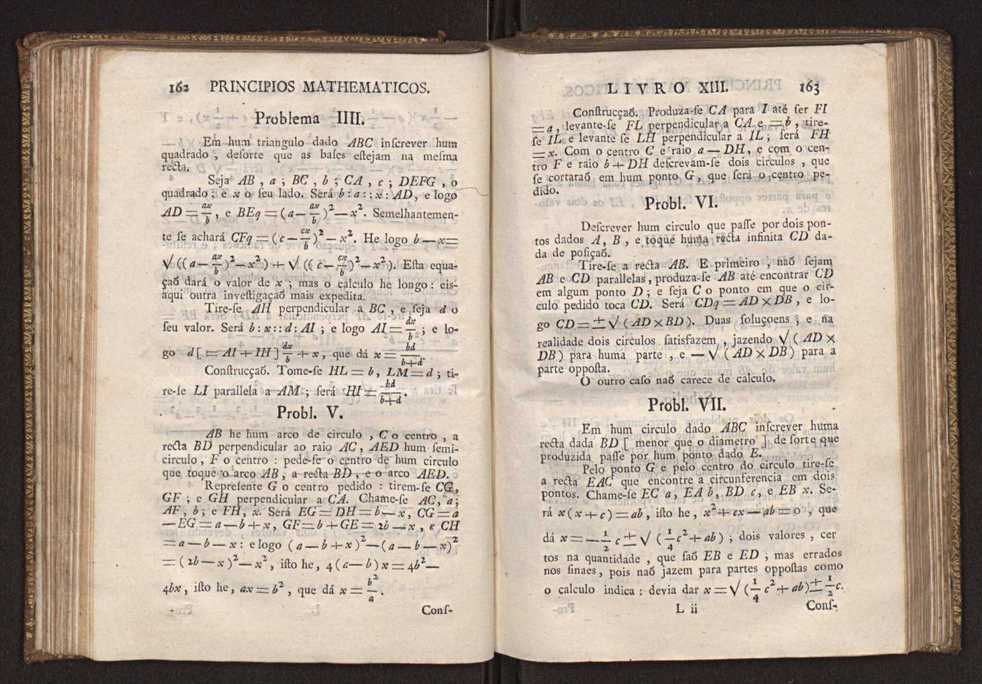 162 PRINCIPIOS MATHEMATICOS.
Problema IIII.
Em hum triangulo dado ABC inſcrever hum
quadrado, deſorte que as baſes eſtejam na meſma
recta.
Seja AB, a; BC, b; CA, c; DEFG, o
quadrado; e x o ſeu lado. Será b:a::x:AD, e logo
AD = ax/b, e BEq = (a — ax/b)² — x². Semelhantemen-
te ſe achará CFq = (c — cx/b)² — x². He logo b — x =
√((a — ax/b)² — x²) + √((c — cx/b)² — x²). Eſta equa-
çaõ dará o valor de x; mas o calculo he longo: eis-
aqui outra inveſtigaçaõ mais expedita.
Tire-ſe AH perpendicular a BC, e ſeja d o
ſeu valor. Será b:x::d:AI; e logo AI = dx/b; e lo-
go d [= AI + IH] dx/b + x, que dá x = bd/b+d.
Conſtrucçaõ. Tome-ſe HL = b, LM = d; ti-
re-ſe LI parallela a AM; ſerá HI = bd/b+d.
Probl. V.
AB he hum arco de circulo, C o centro, a
recta BD perpendicular ao raio AC, AED hum ſemi-
circulo, F o centro: pede-ſe o centro de hum circulo
que toque o arco AB, a recta BD, e o arco AED.
Repreſente G o centro pedido: tirem-ſe CG,
GF; e GH perpendicular a CA. Chame-ſe AC, a;
AF, b; e FH, x. Será EG = DH = b — x, CG = a
— EG = a — b + x, GF = b + GE = 2b — x, e CH
= a — b — x: e logo (a — b + x)² — (a — b — x)²
= (2b — x)² — x², iſto he, 4(a — b)x = 4b² —
4bx, iſto he, ax = b², que dá x = b²/a.
Conſ-
LIVRO XIII. 163
Conſtrucçaõ. Produza-ſe CA para I até ſer FI
= a, levante-ſe FL perpendicular a CA e = b, tire-
ſe IL e levante ſe LH perpendicular a IL; ſerá FH
= x. Com o centro C e raio a — DH, e com o cen-
tro F e raio b + DH deſcrevam-ſe dois circulos, que
ſe cortaraõ em hum ponto G, que ſerá o centro pe-
dido.
Probl. VI.
Deſcrever hum circulo que paſſe por dois pon-
tos dados A, B, e toque huma recta infinita CD da-
da de poſiçaõ.
Tire-ſe a recta AB. E primeiro, naõ ſejam
AB e CD parallelas, produza-ſe AB até encontrar CD
em algum ponto D; e ſeja C o ponto em que o cir-
culo pedido toca CD. Será CDq = AD × DB, e lo-
go CD = ±√(AD × BD). Duas ſoluçoens, e na
realidade dois circulos ſatisfazem, jazendo √(AD ×
DB) para huma parte, e —√(AD × DB) para a
parte oppoſta.
O outro caſo naõ carece de calculo.
Probl. VII.
Em hum circulo dado ABC inſcrever huma
recta dada BD [menor que o diametro] de ſorte que
produzida paſſe por hum ponto dado E.
Pelo ponto G e pelo centro do circulo tire-ſe
a recta EAC que encontre a circunferencia em dois
pontos. Chame-ſe EC a, EA b, BD c, e EB x. Se-
rá x(x + c) = ab, iſto he, x² + cx — ab = 0, que
dá x = — 1/2 c ± √(1/4 c² + ab); dois valores, cer
tos na quantidade, que ſaõ EB e ED; mas errados
nos ſinaes, pois naõ jazem para partes oppoſtas como
o calculo indica: devia dar x = √(1/4 c² + ab) ± 1/2 c.
L ii Conſ-